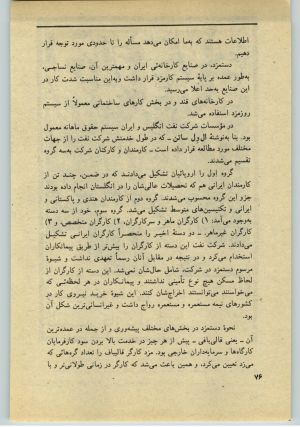 اطلاعات هستند که به‌ما امکان می‌دهد مسأله را تا حدودی مورد توجه قرار
دهیم.
دستمزد، در صنایع کارخانه‌ئی ایران و مهمترین آن، صنایع نساجی،
به‌طور عمده بر پایهٔ سیستم کارمزد قرار داشت و به‌این مناسبت شدت کار در
این صنایع به‌حد اعلا می‌رسید.
در کارخانه‌های قند و در بخش کارهای ساختمانی معمولاً از سیستم
روزمزد استفاده می‌شد.
در مؤسسات شرکت نفت انگلیس و ایران سیستم حقوق ماهانه معمول
بود. بنا به‌نوشتهٔ ال‌ول ساتن ــ که در طول خدمتش شرکت نفت را از جهات
مختلف مورد مطالعه قرار داده است ــ کارمندان و کارکنان شرکت به‌سه گروه
تقسیم می‌شدند.
گروه اول را اروپائیان تشکیل می‌دادند که در ضمن، چند تن از
کارمندان ایرانی هم که تحصیلات عالی‌شان را در انگلستان انجام داده بودند
جزو این گروه محسوب می‌شدند. گروه دوم از کارمندان هندی و پاکستانی و
ایرانی و تکنیسین‌های متوسط تشکیل می‌شد. گروه سوم، خود از سه دسته
به‌وجود می‌آمد: ۱) کارگران ماهر و سرکارگران، ۲) کارگران متخصص، و ۳)
کارگران غیرماهر. ــ دو دستهٔ اخیر را منحصراً کارگران ایرانی تشکیل
می‌دادند. شرکت نفت این دسته از کارگران را بیش‌تر از طریق پیمانکاران
استخدام می‌کرد و در نتیجه در مقابل آنان رسماً تعهدی نداشت و شیوهٔ
مرسوم دستمزد در شرکت، شامل حال‌شان نمی‌شد. این دسته از کارگران از
لحاظ مسکن هیچ نوع تأمینی نداشتند و پیمانکاران در هر لحظه‌ئی که
می‌خواستند می‌توانستند اخراج‌شان کنند. این شیوهٔ خرید نیروی کار در
کشورهای نیمه مستعمره و مستعمره رواج داشت و غیرانسانی‌ترین شکل آن
بود.
نحوهٔ دستمزد در بخش‌های مختلف پیشه‌وری و از جمله در عمده‌ترین
آن ــ یعنی قالی‌بافی ــ پیش از هر چیز در خدمت بالا بردن سود کارفرمایان
کارگاه‌ها و سرمایه‌داران خارجی بود. مزد کارگر قالیباف را تعداد گره‌هائی که
می‌زد تعیین می‌کرد، و همین باعث می‌شد که کارگر در زمانی طولانی‌تر و با
۷۶